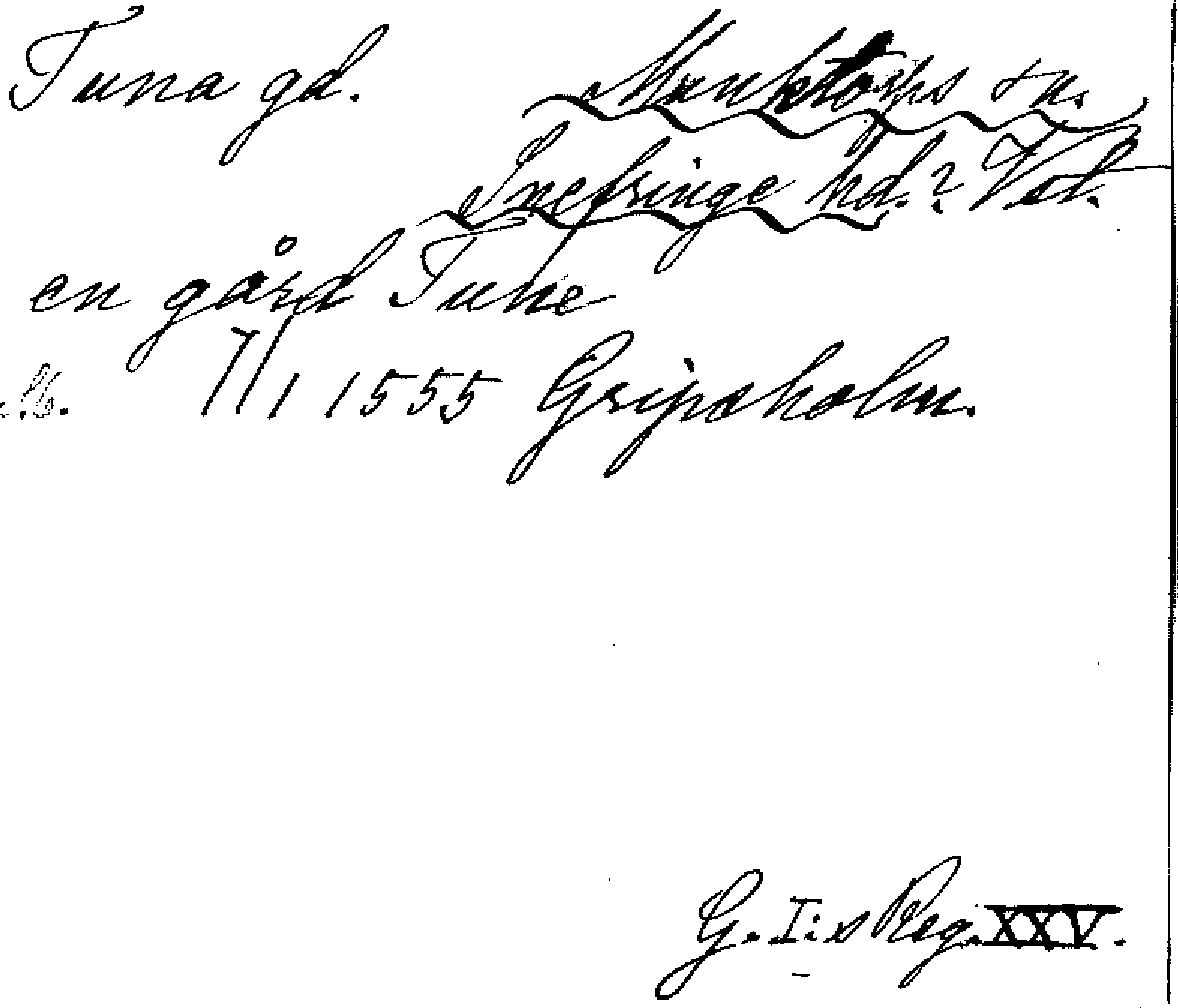 Tuna gd. Munktorps sn.
Snefringe hd.? Vstl.
en gård Tune
7/1 1555 Gripsholm.
G. I:s Reg. XXV.